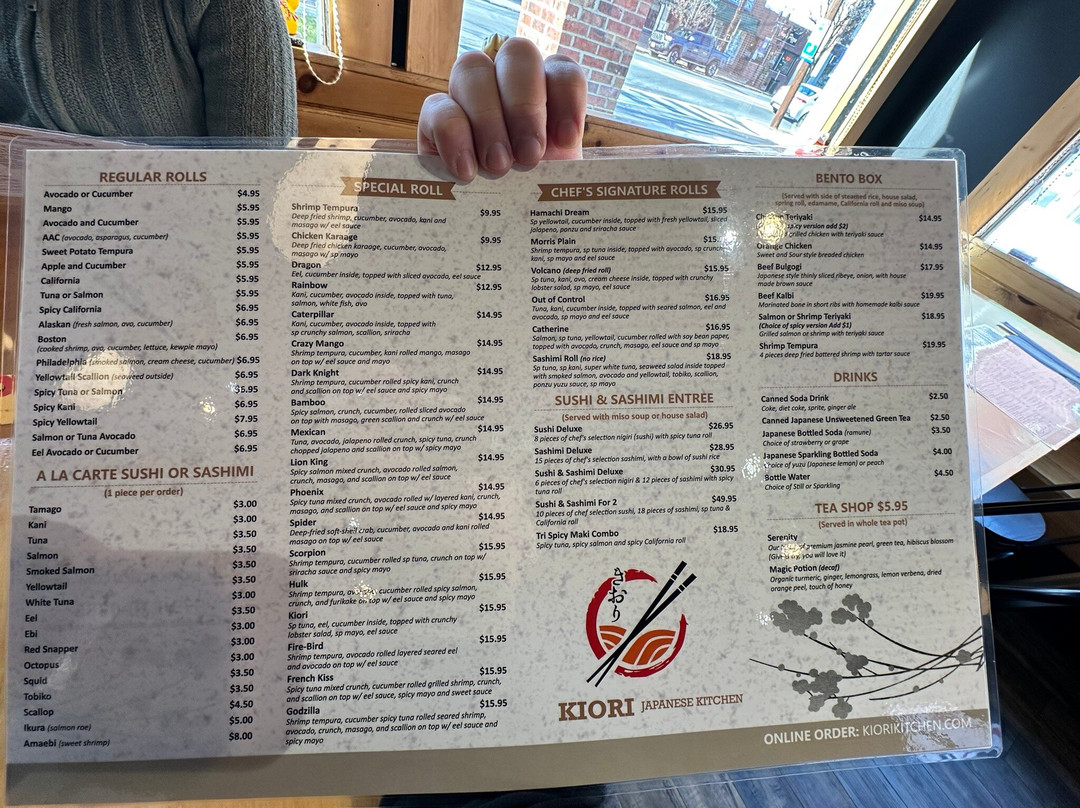 REGULAR ROLLS
Avocado or Cucumber $4.95
Mango $5.95
Avocado and Cucumber $5.95
AAC (avocado, asparagus, cucumber) $5.95
Sweet Potato Tempura $5.95
Apple and Cucumber $5.95
California $5.95
Tuna or Salmon $5.95
Spicy California $6.95
Alaskan (fresh salmon, avo, cucumber) $6.95
Boston $6.95
(cooked shrimp, avo, cucumber, lettuce, kewpie mayo)
Philadelphia (smoked salmon, cream cheese, cucumber) $6.95
Yellowtail Scallion (seaweed outside) $6.95
Spicy Tuna or Salmon $6.95
Spicy Kani $6.95
Spicy Yellowtail $7.95
Salmon or Tuna Avocado $6.95
Eel Avocado or Cucumber $6.95
A LA CARTE SUSHI OR SASHIMI
(1 piece per order)
Tamago $3.00
Kani $3.00
Tuna $3.50
Salmon $3.50
Smoked Salmon $3.50
Yellowtail $3.50
White Tuna $3.00
Eel $3.50
Ebi $3.00
Red Snapper $3.00
Octopus $3.00
Squid $3.50
Tobiko $3.50
Scallop $4.50
Ikura (salmon roe) $5.00
Amaebi (sweet shrimp) $8.00
SPECIAL ROLL
Shrimp Tempura $9.95
Deep fried shrimp, cucumber, avocado, kani and
masago w/ eel sauce
Chicken Karaage $9.95
Deep fried chicken karaage, cucumber, avocado,
masago w/ sp mayo
Dragon $12.95
Eel, cucumber inside, topped with sliced avocado, eel sauce
Rainbow $12.95
Kani, cucumber, avocado inside, topped with tuna,
salmon, white fish, avo
Caterpillar $14.95
Kani, cucumber, avocado inside, topped with
sp crunchy salmon, scallion, sriracha
Crazy Mango $14.95
Shrimp tempura, cucumber, kani rolled mango, masago
on top w/ eel sauce and mayo
Dark Knight $14.95
Shrimp tempura, cucumber rolled spicy kani, crunch
and scallion on top w/ eel sauce and spicy mayo
Bamboo $14.95
Spicy salmon, crunch, cucumber, rolled sliced avocado
on top with masago, green scallion and crunch w/ eel sauce
Mexican $14.95
Tuna, avocado, jalapeno rolled crunch, spicy tuna, crunch
chopped jalapeno and scallion on top w/ spicy mayo
Lion King $14.95
Spicy salmon mixed crunch, avocado rolled salmon,
crunch, masago, and scallion on top w/ eel sauce
Phoenix $14.95
Spicy tuna mixed crunch, avocado rolled w/ layered kani, crunch,
masago, and scallion on top w/ eel sauce and spicy mayo
Spider $14.95
Deep-fried soft-shell crab, cucumber, avocado and kani rolled
masago on top w/ eel sauce
Scorpion $15.95
Shrimp tempura, cucumber rolled sp tuna, crunch on top w/
sriracha sauce and spicy mayo
Hulk $15.95
Shrimp tempura, avocado, cucumber rolled spicy salmon,
crunch, and furikake on top w/ eel sauce and spicy mayo
Kiori $15.95
Sp tuna, eel, cucumber inside, topped with crunchy
lobster salad, sp mayo, eel sauce
Fire-Bird $15.95
Shrimp tempura, avocado rolled layered seared eel
and avocado on top w/ eel sauce
French Kiss $15.95
Spicy tuna mixed crunch, cucumber rolled grilled shrimp, crunch,
and scallion on top w/ eel sauce, spicy mayo and sweet sauce
Godzilla $15.95
Shrimp tempura, cucumber spicy tuna rolled seared shrimp,
avocado, crunch, masago, and scallion on top w/ eel sauce and
spicy mayo
CHEF'S SIGNATURE ROLLS
Hamachi Dream $15.95
Sp yellowtail, cucumber inside, topped with fresh yellowtail, sliced
jalapeno, ponzu and sriracha sauce
Morris Plain
Shrimp tempura, sp tuna inside, topped with avocado, sp crunch
kani, sp mayo and eel sauce
Volcano (deep fried roll) $15.95
Sp tuna, kani, avo, cream cheese inside, topped with crunchy
lobster salad, sp mayo, eel sauce
Out of Control $16.95
Tuna, kani, cucumber inside, topped with seared salmon, eel and
avocado, sp mayo and eel sauce
Catherine $16.95
Salmon, sp tuna, yellowtail, cucumber rolled with soy bean paper,
topped with avocado, crunch, masago, eel sauce and sp mayo
Sashimi Roll (no rice) $18.95
Sp tuna, sp kani, super white tuna, seaweed salad inside topped
with smoked salmon, avocado and yellowtail, tobiko, scallion,
ponzu yuzu sauce, sp mayo
SUSHI & SASHIMI ENTRÉE
(Served with miso soup or house salad)
Sushi Deluxe $26.95
8 pieces of chef's selection nigiri (sushi) with spicy tuna roll
Sashimi Deluxe $28.95
15 pieces of chef's selection sashimi, with a bowl of sushi rice
Sushi & Sashimi Deluxe $30.95
6 pieces of chef's selection nigiri & 12 pieces of sashimi with spicy
tuna roll
Sushi & Sashimi For 2 $49.95
10 pieces of chef selection sushi, 18 pieces of sashimi, sp tuna &
California roll
Tri Spicy Maki Combo $18.95
Spicy tuna, spicy salmon and spicy California roll
KIORI JAPANESE KITCHEN
BENTO BOX
(Served with side of steamed rice, house salad,
spring roll, edamame, California roll and miso soup)
Teriyaki $14.95
version add $2)
grilled chicken with teriyaki sauce
Orange Chicken $14.95
Sweet and Sour style breaded chicken
Beef Bulgogi $17.95
Japanese style thinly sliced ribeye, onion, with house
made brown sauce
Beef Kalbi $19.95
Marinated bone in short ribs with homemade kalbi sauce
Salmon or Shrimp Teriyaki $18.95
(Choice of spicy version Add $1)
Grilled salmon or shrimp with teriyaki sauce
Shrimp Tempura $19.95
4 pieces deep fried battered shrimp with tartar sauce
DRINKS
Canned Soda Drink $2.50
Coke, diet coke, sprite, ginger ale
Canned Japanese Unsweetened Green Tea $2.50
Japanese Bottled Soda (ramune) $3.50
Choice of strawberry or grape
Japanese Sparkling Bottled Soda $4.00
Choice of yuzu (Japanese lemon) or peach
Bottle Water $4.50
Choice of Still or Sparkling
TEA SHOP $5.95
(Served in whole tea pot)
Serenity
Our premium jasmine pearl, green tea, hibiscus blossom
you will love it)
Magic Potion (decaf)
Organic turmeric, ginger, lemongrass, lemon verbena, dried
orange peel, touch of honey
ONLINE ORDER: KIORIKITCHEN.COM